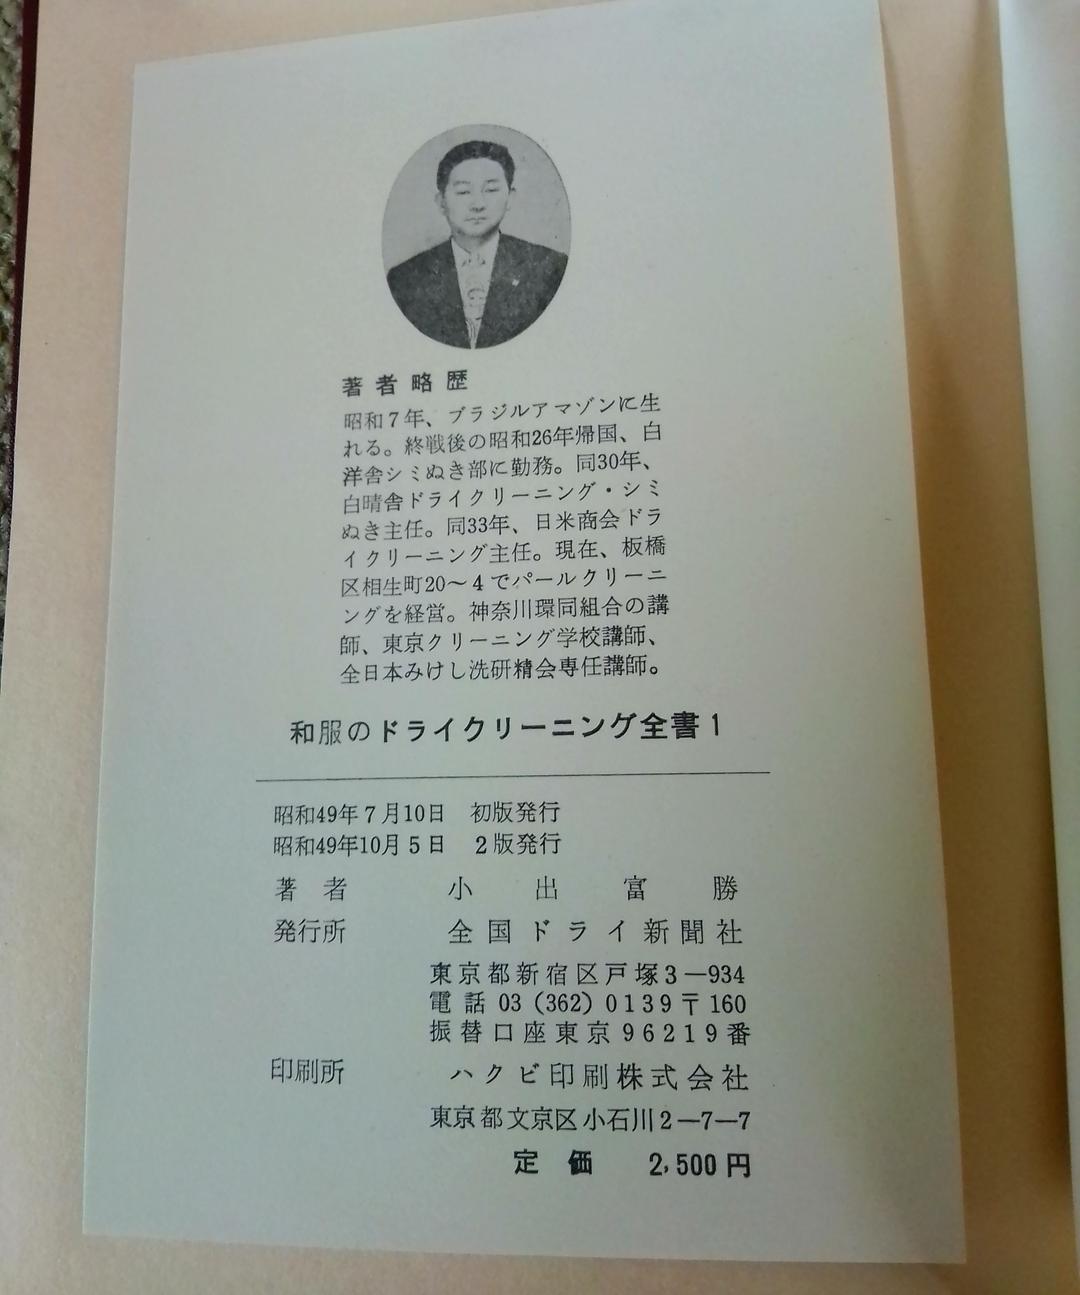 著者略歴
昭和7年、ブラジルアマゾンに生
れる。終戦後の昭和26年帰国、白
洋舎シミぬき部に勤務。同30年、
白晴舎ドライクリーニング・シミ
ぬき主任。同33年、日米商会ドラ
イクリーニング主任。現在、板橋
区相生町20〜4でパールクリーニ
ングを経営。神奈川環同組合の講
師、東京クリーニング学校講師、
全日本みけし洗研精会専任講師。
和服のドライクリーニング全書1
昭和49年7月10日 初版発行
昭和49年10月5日 2版発行
著者 小出富勝
発行所 全国ドライ新聞社
東京都新宿区戸塚3—934
電話 03 (362) 0139 〒160
振替口座東京96219番
印刷所 ハクビ印刷株式会社
東京都文京区小石川2—7—7
定価 2,500円